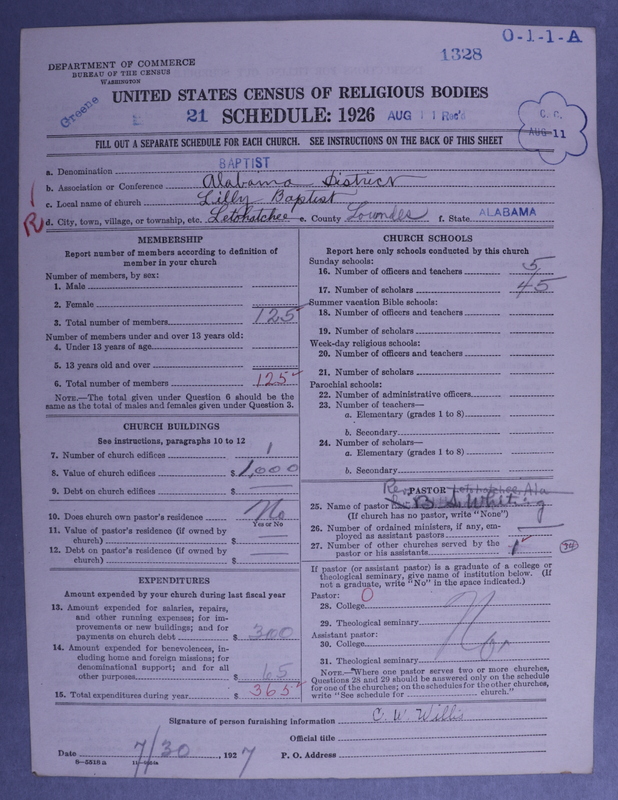 O-1-1-A
1328
DEPARTMENT OF COMMERCE
BUREAU OF THE CENSUS
WASHINGTON
Greene
UNITED STATES CENSUS OF RELIGIOUS BODIES
21 SCHEDULE: 1926 AUG 11 Rec'd
C. C.
AUG 11
FILL OUT A SEPARATE SCHEDULE FOR EACH CHURCH. SEE INSTRUCTIONS ON THE BACK OF THIS SHEET
a. Denomination BAPTIST
b. Association or Conference Alabama District
c. Local name of church Lilly Baptist
R d. City, town, village, or township, etc. Letohatchee e. County Lowndes f. State ALABAMA
MEMBERSHIP
Report number of members according to definition of
member in your church
Number of members, by sex:
1. Male
2. Female
3. Total number of members 125
Number of members under and over 13 years old:
4. Under 13 years of age
5. 13 years old and over
6. Total number of members 125
NOTE.—The total given under Question 6 should be the
same as the total of males and females given under Question 3.
CHURCH BUILDINGS
See instructions, paragraphs 10 to 12
7. Number of church edifices 1
8. Value of church edifices $ 1,000
9. Debt on church edifices $
10. Does church own pastor's residence No
Yes or No
11. Value of pastor's residence (if owned by
church) $
12. Debt on pastor's residence (if owned by
church) $
EXPENDITURES
Amount expended by your church during last fiscal year
13. Amount expended for salaries, repairs,
and other running expenses; for im-
provements or new buildings; and for
payments on church debt $ 300
14. Amount expended for benevolences, in-
cluding home and foreign missions; for
denominational support; and for all
other purposes $ 65
15. Total expenditures during year $ 365
CHURCH SCHOOLS
Report here only schools conducted by this church
Sunday schools:
16. Number of officers and teachers 5
17. Number of scholars 45
Summer vacation Bible schools:
18. Number of officers and teachers
19. Number of scholars
Week-day religious schools:
20. Number of officers and teachers
21. Number of scholars
Parochial schools:
22. Number of administrative officers
23. Number of teachers—
a. Elementary (grades 1 to 8)
b. Secondary
24. Number of scholars—
a. Elementary (grades 1 to 8)
b. Secondary
PASTOR Letohatchee, Ala
25. Name of pastor B. S. Whiting
(If church has no pastor, write "None")
26. Number of ordained ministers, if any, em-
ployed as assistant pastors
27. Number of other churches served by the
pastor or his assistants 1
If pastor (or assistant pastor) is a graduate of a college or
theological seminary, give name of institution below. (If
not a graduate, write "No" in the space indicated.)
Pastor: 0
28. College
29. Theological seminary No
Assistant pastor:
30. College
31. Theological seminary
NOTE.—Where one pastor serves two or more churches,
Questions 28 and 29 should be answered only on the schedule
for one of the churches; on the schedules for the other churches,
write "See schedule for church."
Signature of person furnishing information C. W. Willis
Official title
Date 7/30, 1927 P. O. Address
8-5518a